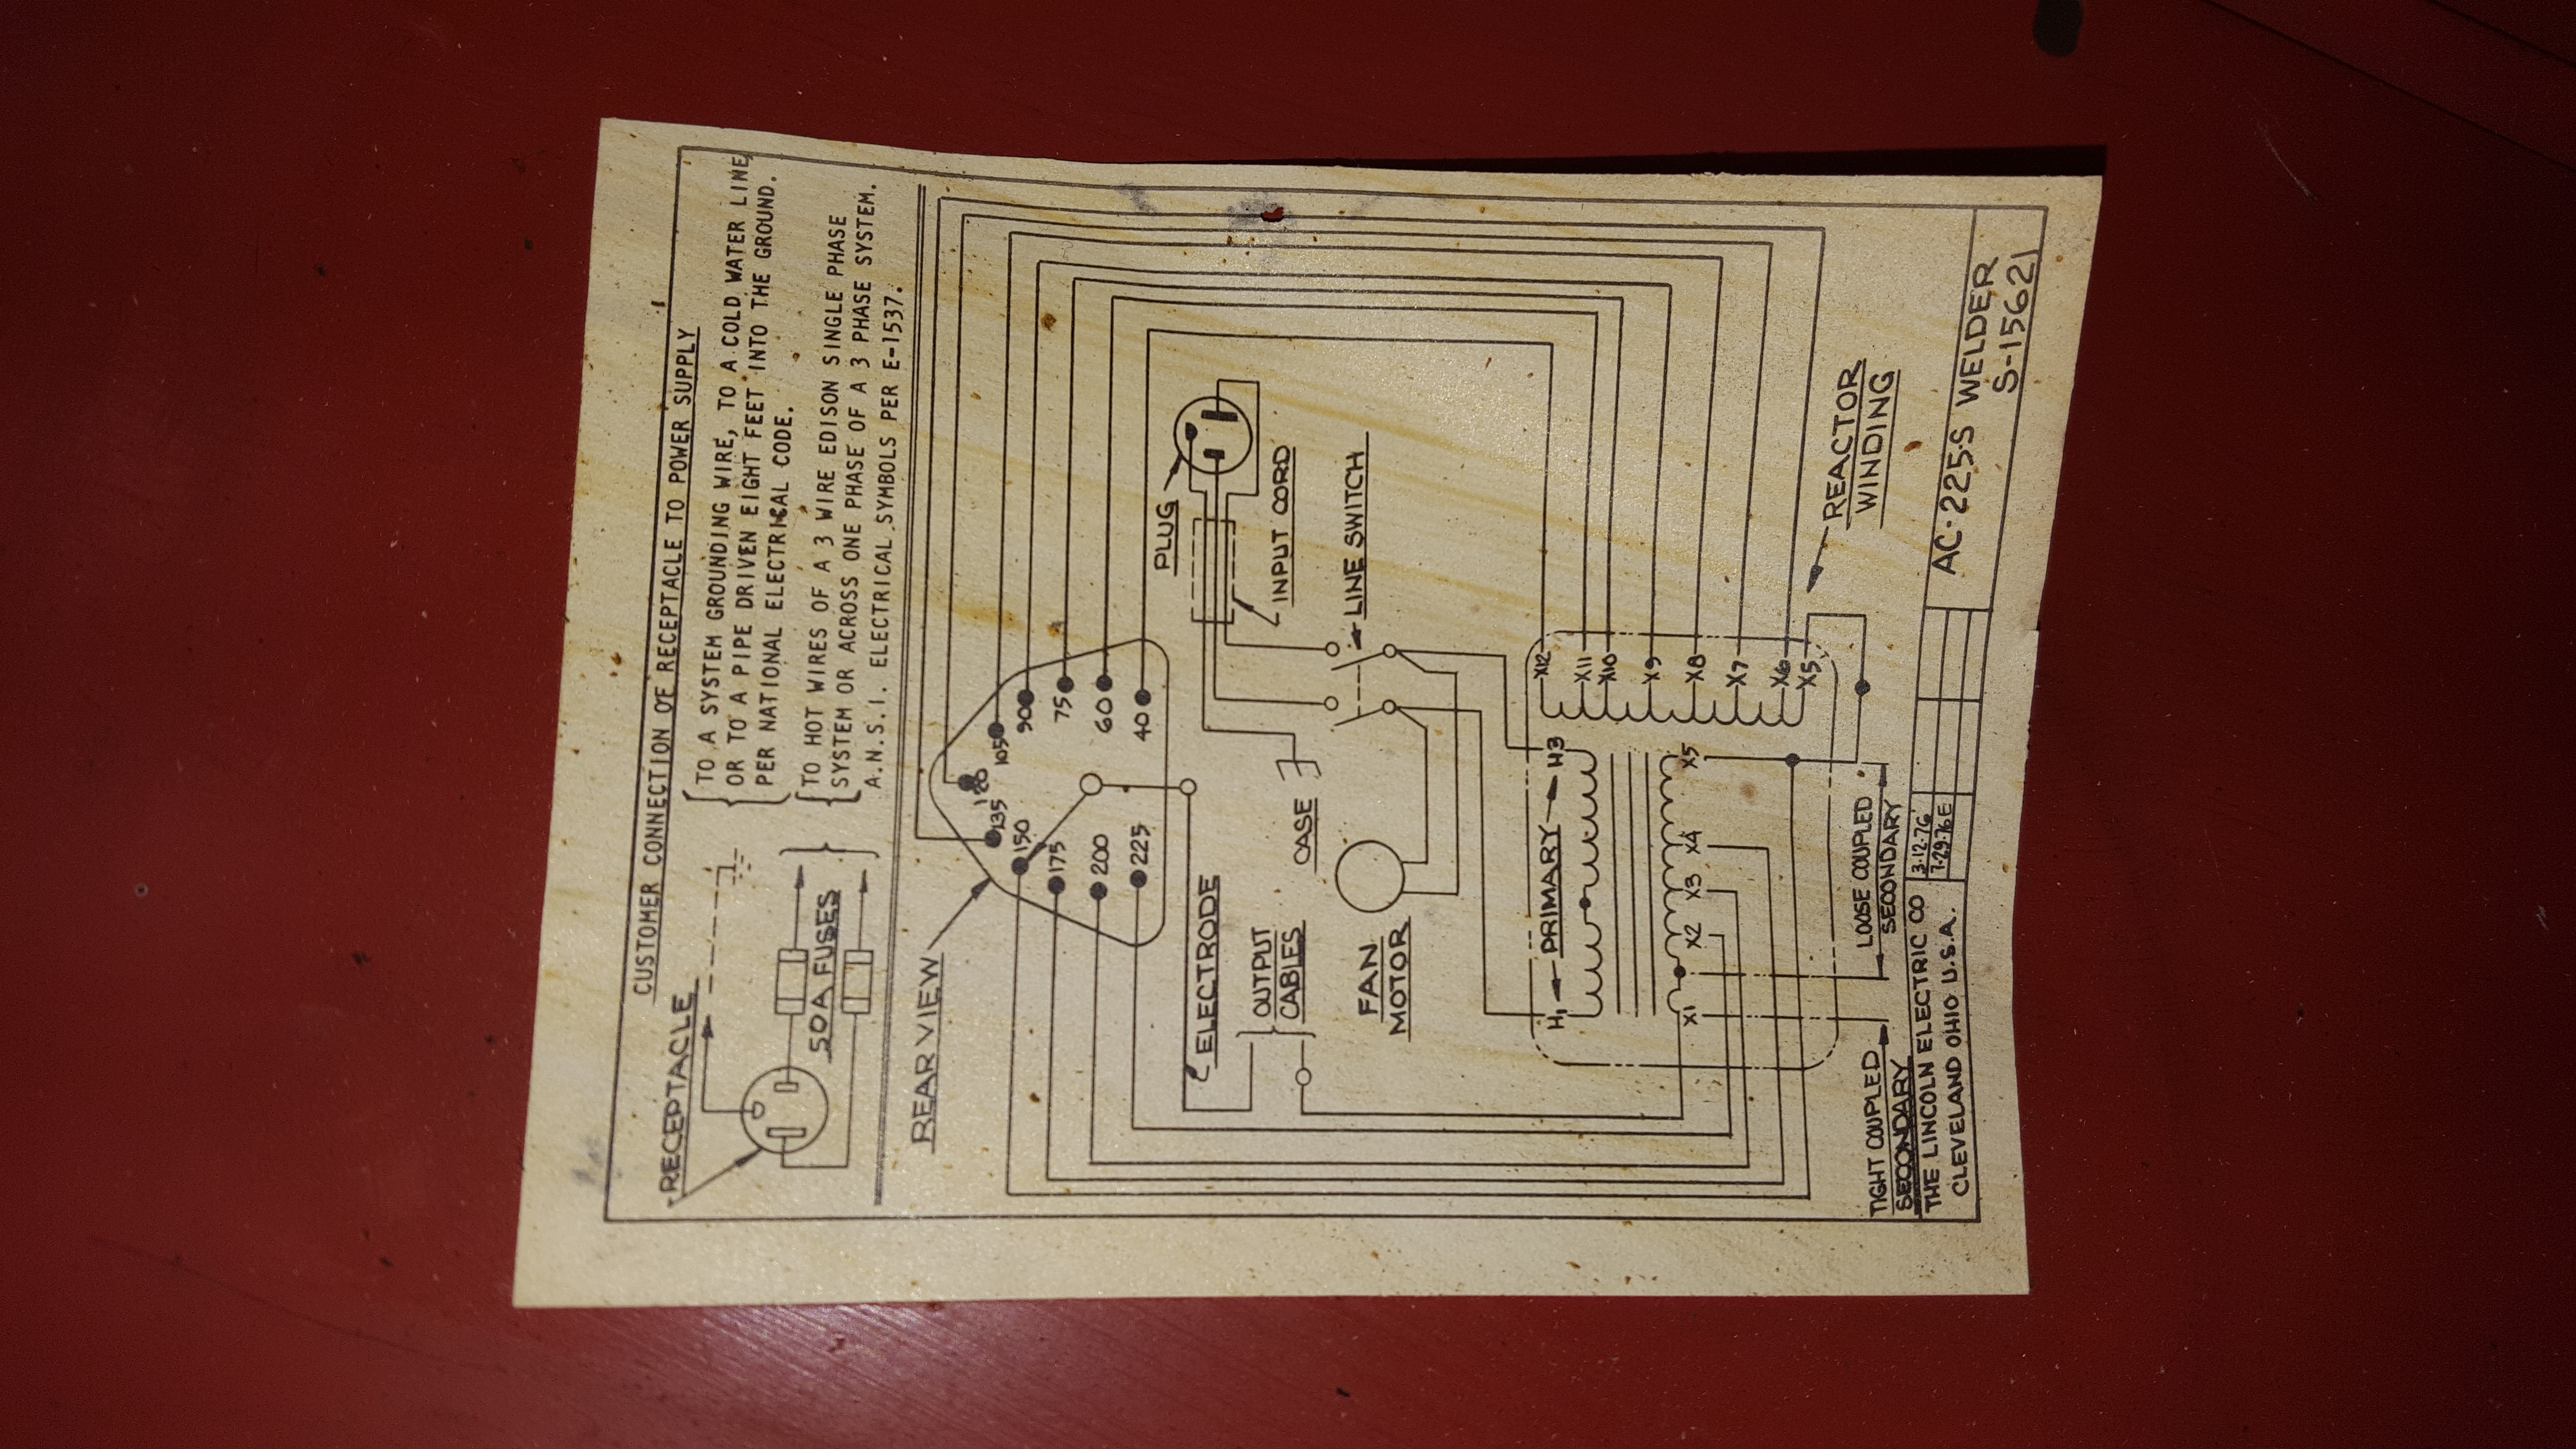 CUSTOMER CONNECTION OF RECEPTACLE TO POWER SUPPLY
RECEPTACLE
TO A SYSTEM GROUNDING WIRE, TO A COLD WATER LINE,
OR TO A PIPE DRIVEN EIGHT FEET INTO THE GROUND.
PER NATIONAL ELECTRICAL CODE.
50A FUSES
TO HOT WIRES OF A 3 WIRE EDISON SINGLE PHASE
SYSTEM OR ACROSS ONE PHASE OF A 3 PHASE SYSTEM.
A.N.S.I. ELECTRICAL SYMBOLS PER E-1537.
REAR VIEW
120
135
105
150
90
175
75
200
60
225
40
PLUG
ELECTRODE
INPUT CORD
OUTPUT
CABLES
CASE
LINE SWITCH
FAN
MOTOR
H1
PRIMARY
H3
X12
X11
X10
X9
X8
X7
X6
X5
X1
X2
X3
X4
X5
REACTOR
WINDING
TIGHT COUPLED
SECONDARY
LOOSE COUPLED
SECONDARY
THE LINCOLN ELECTRIC CO
CLEVELAND OHIO U.S.A.
3-12-76
7-29-76E
AC-225-S WELDER
S-15621